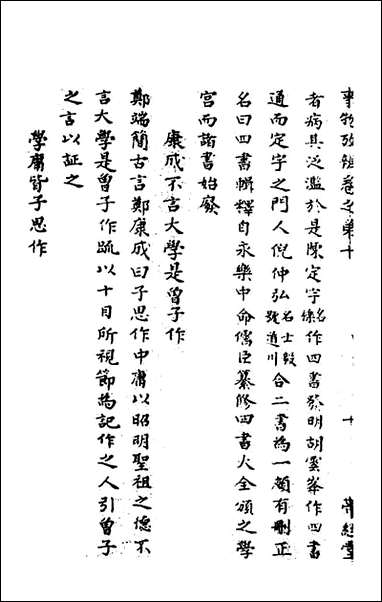 者病其泛濫於是陳定宇名櫟作四書發明胡雲峯作四書
通而定宇之門人倪仲弘名士毅號道川合二書為一頗有刪正
名曰四書輯釋自永樂中命儒臣纂修四書大全頒之學
宮而諸書始廢
康成不言大學是曾子作
鄭端簡古言鄭康成曰子思作中庸以昭明聖祖之德不
言大學是曾子作疏以十目所視節為記作之人引曾子
之言以証之
學庸皆子思作